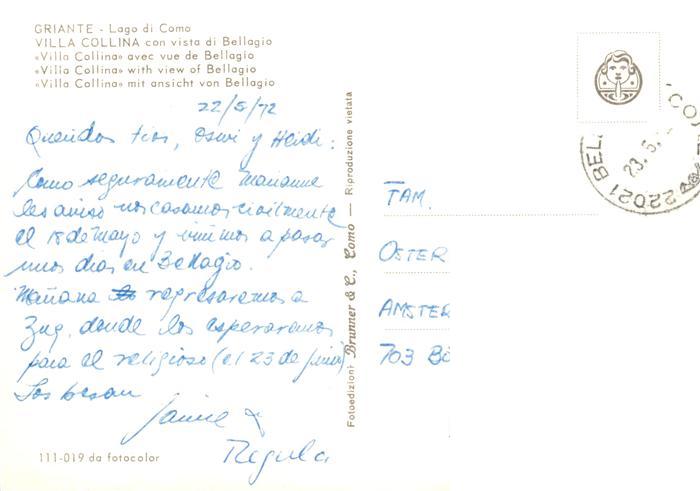 GRIANTE - Lago di Como
VILLA COLLINA con vista di Bellagio
«Villa Collina» avec vue de Bellagio
«Villa Collina» with view of Bellagio
«Villa Collina» mit ansicht von Bellagio
22/5/72
Queridos tios, Oswi y Heidi:
Como seguramente Marianne
les aviso nos casamos civilmente
el 18 de mayo y vinimos a pasar
unos dias en Bellagio.
Mañana regresaremos a
Zug, donde los esperaremos
para el religioso (el 23 de Junio)
Los besan
Jaime &
Regula
111-019 da fotocolor
Fotoedizioni Brunner & C., Como — Riproduzione vietata
22021 BEL
23.5.
CO
FAM.
OSTER
AMSTER
703 BÖ